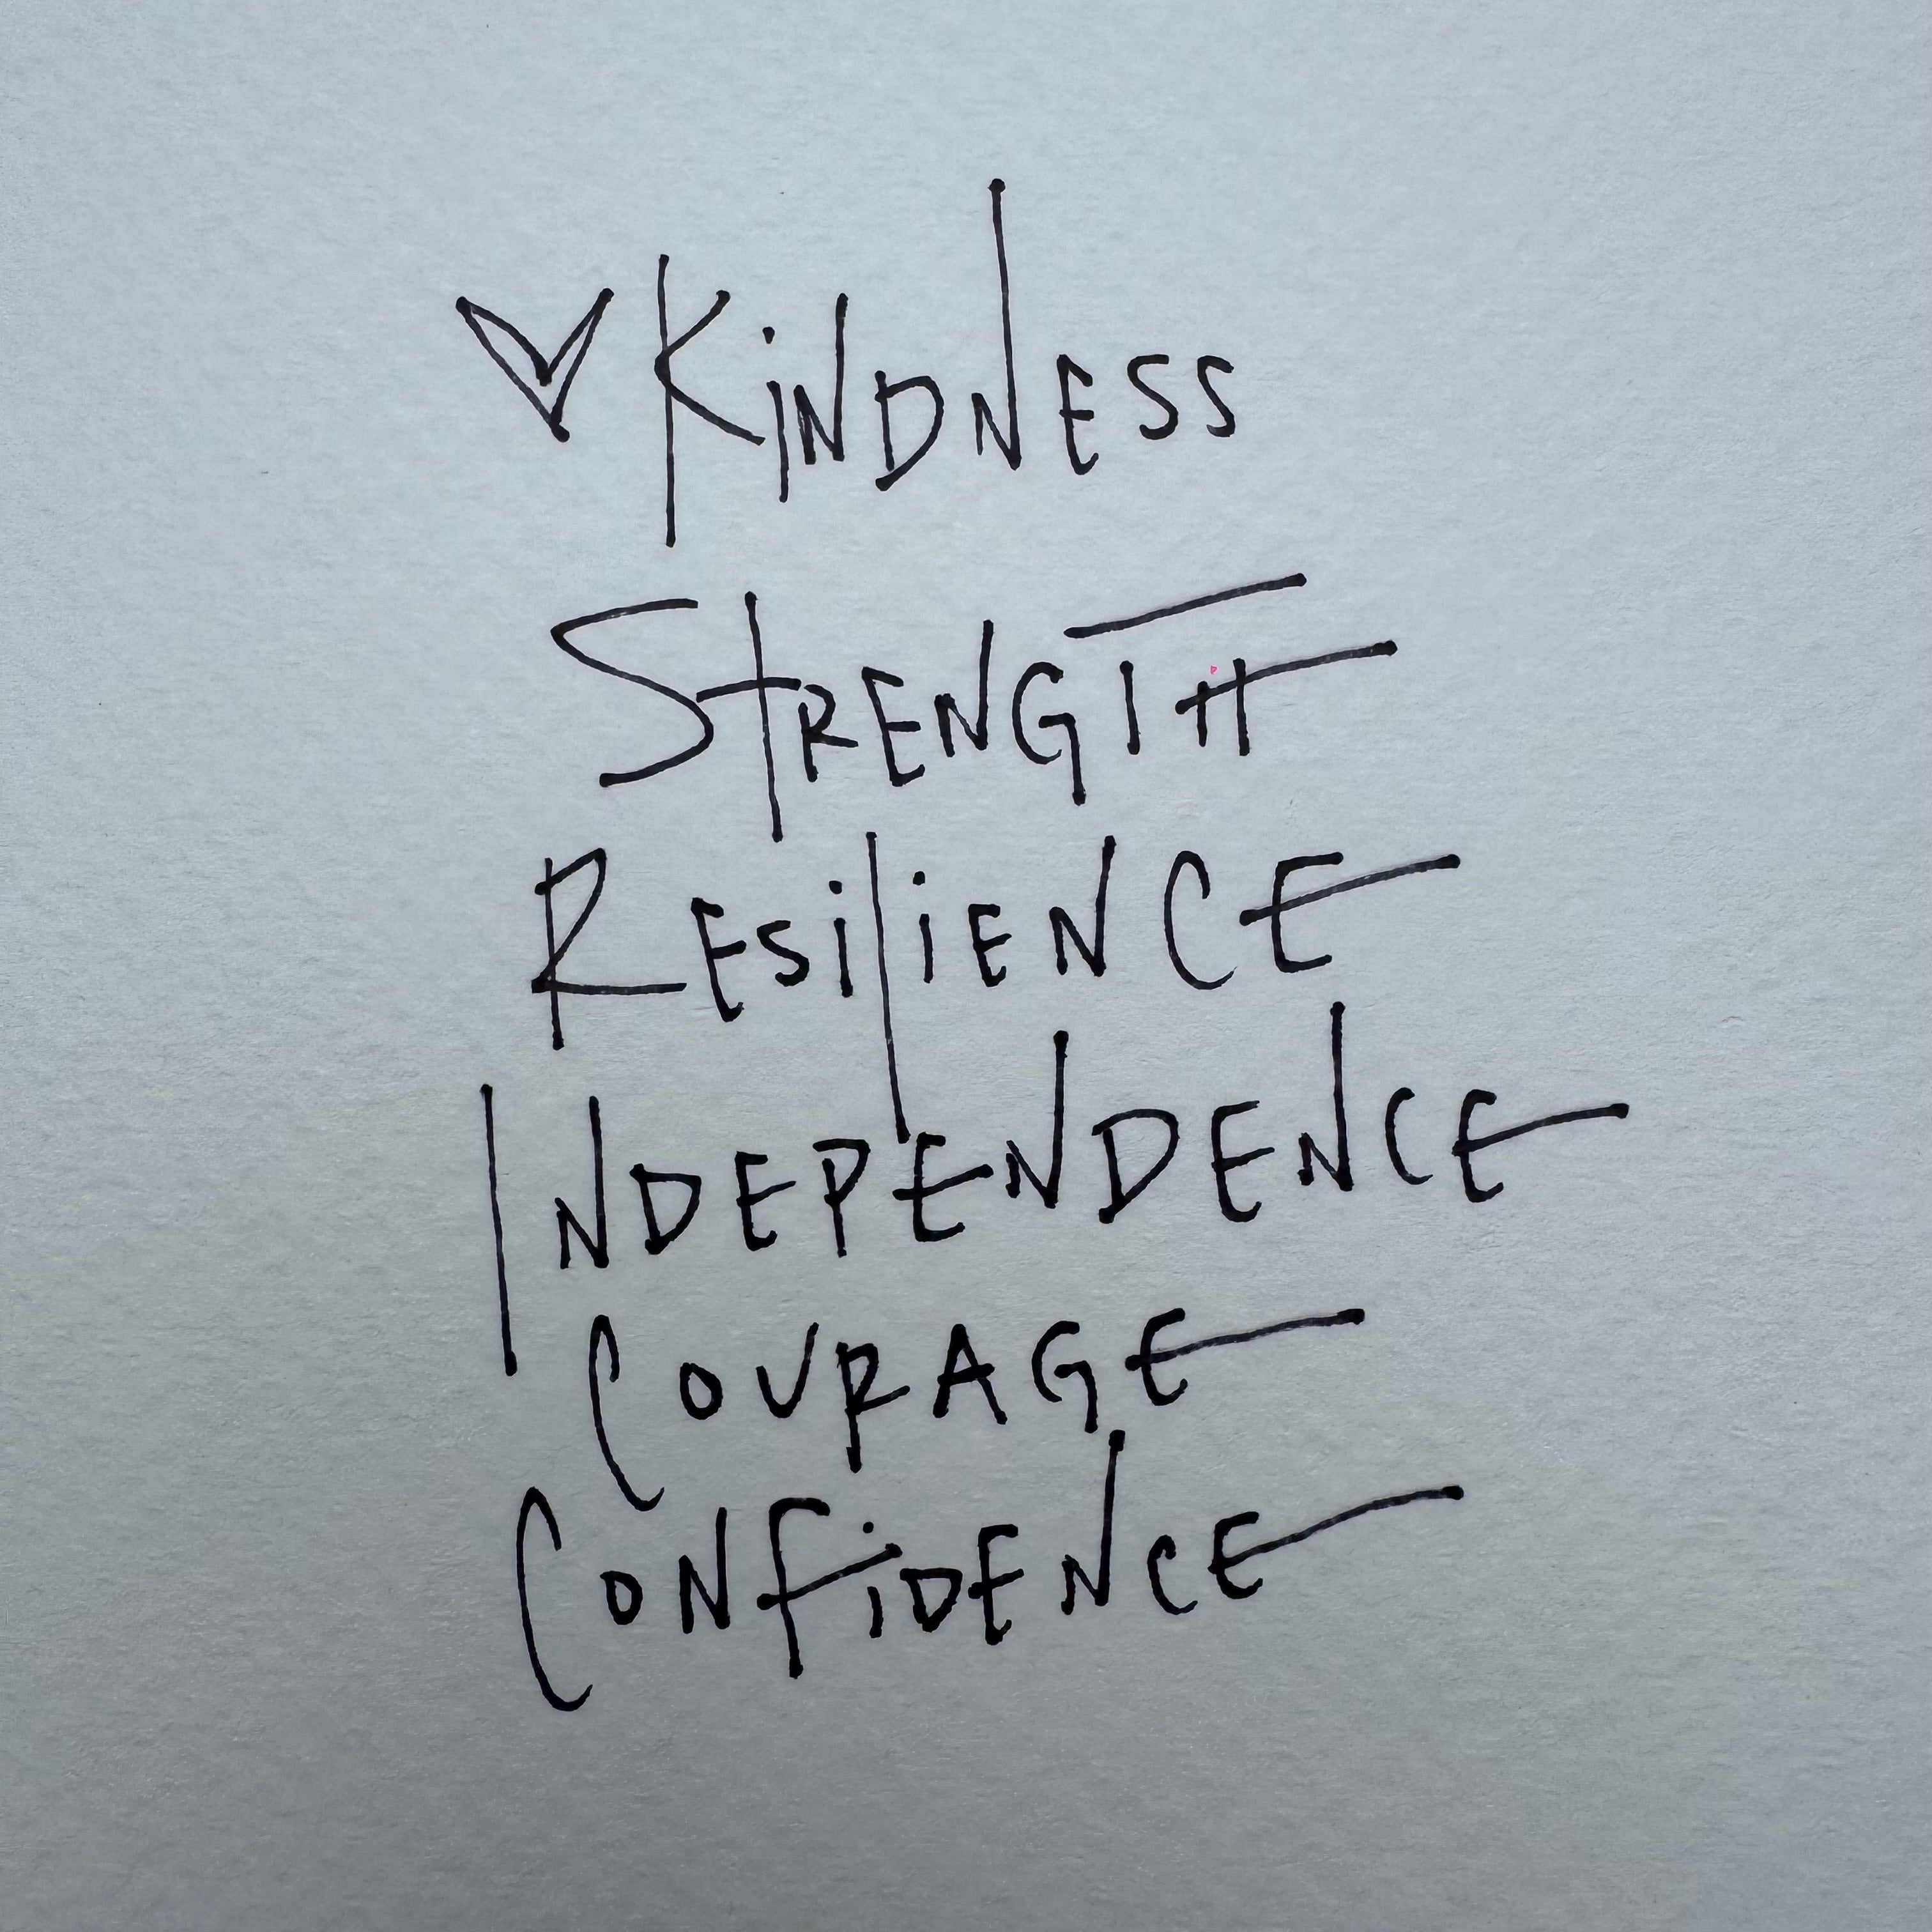 ♡ KiNDNESS
STRENGTH
RESiLiENCE
INDEPENDENCE
COURAGE
CONFiDENCE